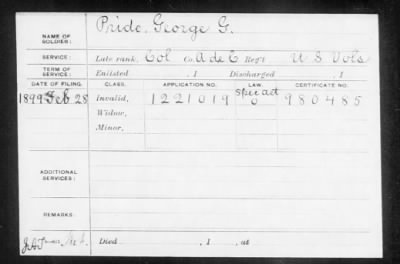 NAME OF SOLDIER: Pride, George G.
SERVICE: Late rank, Col Co. A de C Reg't U S Vols
TERM OF SERVICE: Enlisted , 1 Discharged , 1
DATE OF FILING. CLASS. APPLICATION NO. LAW. CERTIFICATE NO.
1899 Feb 28 Invalid, 1221019 spec act 980485
Widow,
Minor,
ADDITIONAL SERVICES:
REMARKS:
Died , 1 , at